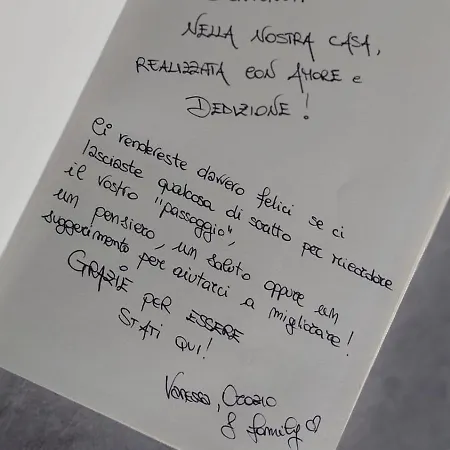 NELLA NOSTRA CASA,
REALIZZATA CON AMORE e
DEDIZIONE!
Ci rendereste davvero felici se ci
lasciaste qualcosa di scritto per ricordare
il vostro "passaggio",
un pensiero, un saluto oppure un
suggerimento per aiutarci a migliorare!
GRAZIE PER ESSERE
STATI QUI!
Vanessa, Orazio
& family